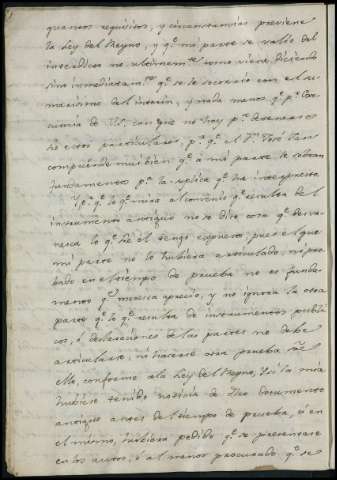 quantos requisitos, y circunstancias previene
la Ley del Reyno, y q.e mi parte se valió del
interdicto no ultimam.te como viene, diciendo
sino inmediatam.te q.e se le
del interin, y nada menos q.e p.r
con que no hay p.a detenernos
en estos particulares, p.r q.e el S.r José
comprende mui bien q.e a mi parte le sobran
fundamentos p.a la suplica q.e ha interpuesto
Y p.r q.e lo q.e mira al convenio q.e resulta del
instrumento antiguo no se dice cosa q.e desva-
nesca lo q.e he el tengo expuesto, pues el que
mi parte no lo hubiera articulado, ni pro-
bado en el tiempo de prueba no es funda-
mento q.e meresca aprecio, y no ignora la otra
parte q.e lo q.e resulta de instrumentos publi-
cos, ó declaraciones de las partes no debe
articularse, ni hacerse otra prueba sre
ello, conforme a la Ley del Reyno, Y si la mia
hubiese tenido noticia de dho documento
antiguo antes del tiempo de prueba, ó en
el mismo, hubiera pedido q.e se presentase
en los autos, ó al menos procurado q.e se